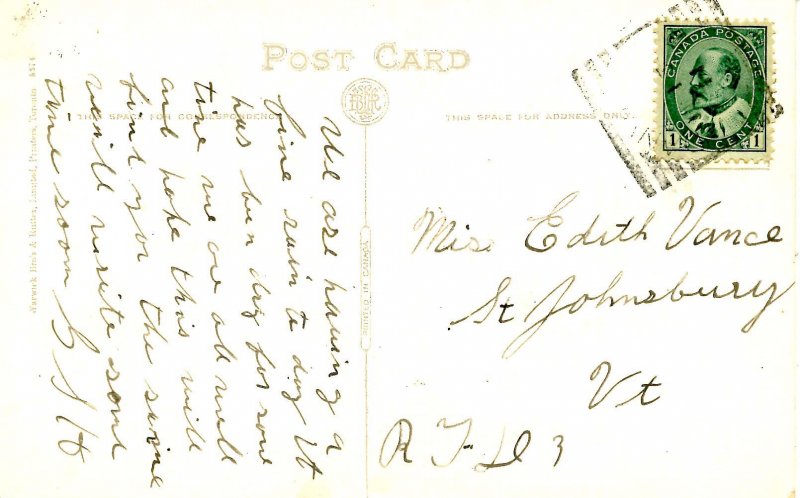 POST CARD
THIS SPACE FOR CORRESPONDENCE
THIS SPACE FOR ADDRESS ONLY.
CANADA POSTAGE
1 ONE CENT 1
We are having a
fine rain to day it
has ben dry for some
time we are all well
and hope this will
find you the same
will write some
time soon
Miss Edith Vance
St Johnsbury
Vt
R F D 3
PRINTED IN CANADA
Warwick Bro's & Rutter, Limited, Printers, Toronto